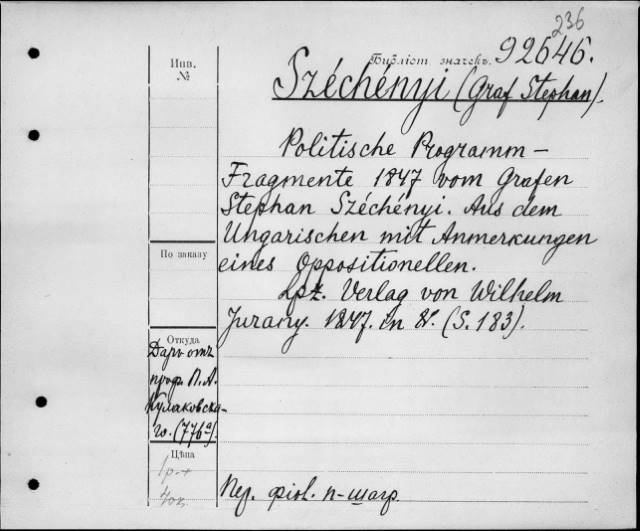 236
Библіот. значекъ 92646.
Инв.
№
Széchényi (Graf Stephan).
Politische Programm-
Fragmente 1847 vom Grafen
Stephan Széchényi. Aus dem
Ungarischen mit Anmerkungen
По заказу
eines Oppositionellen.
Lpz. Verlag von Wilhelm
Jurany. 1847. in 8. (S. 183).
Откуда
Даръ отъ
проф. П. А.
Кулаковска-
го. (776 a).
Цѣна
1 р.
40 к.
Пер. фіол. п-шагр.